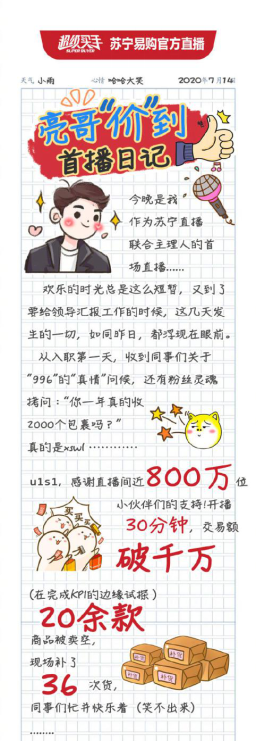 超级买手 苏宁易购官方直播
SUPER BUYER
天气 小雨 心情 哈哈大笑 2020年7月14日
亮哥“价”到
首播日记
今晚是我
作为苏宁直播
联合主理人的首
场直播……
欢乐的时光总是这么短暂，又到了
要给领导汇报工作的时候，这几天发
生的一切，如同昨日，都浮现在眼前。
从入职第一天，收到同事们关于
“996”的“真情”问候，还有粉丝灵魂
拷问：“你一年真的收
2000个包裹吗？”
真的是xswl …………
u1s1，感谢直播间近800万位
小伙伴们的支持！开播
30分钟，交易额
破千万
买买买
(在完成KPI的边缘试探)
20余款
商品被卖空，
现场补了
36 次货，
补货
补货
补货
同事们忙并快乐着（笑不出来）
........